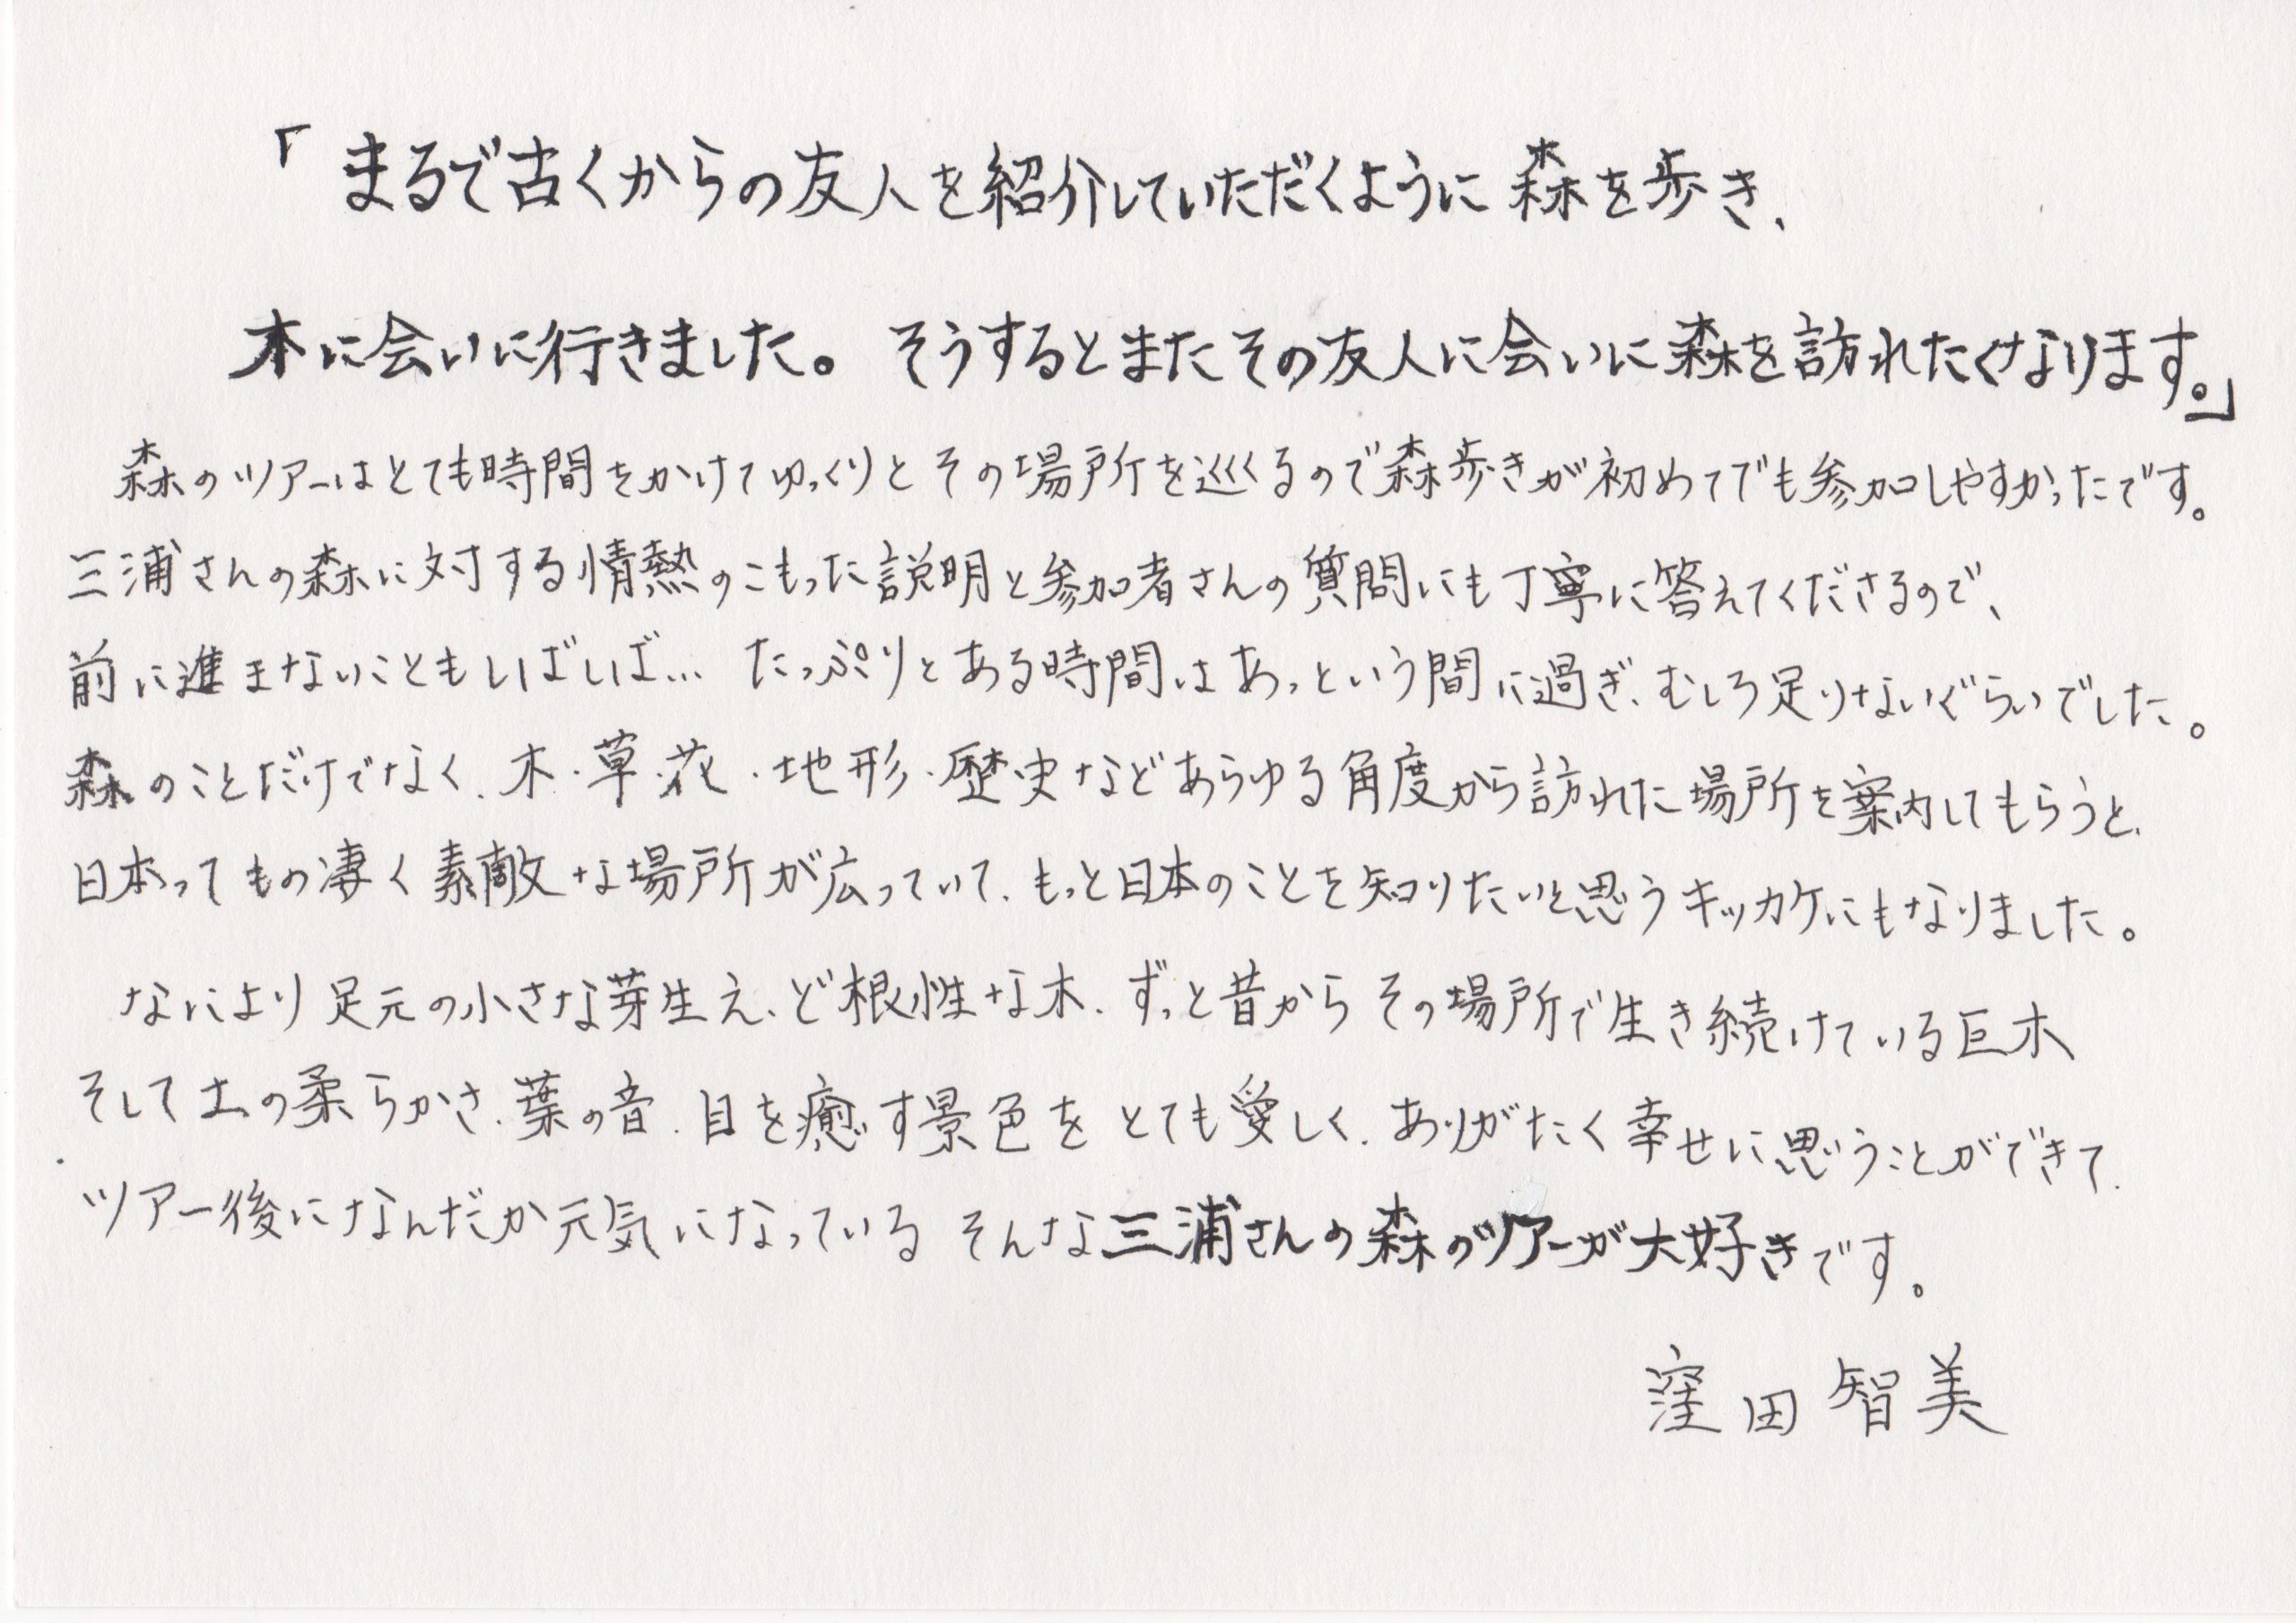 「まるで古くからの友人を紹介していただくように森を歩き、
木に会いに行きました。そうするとまたその友人に会いに森を訪れたくなります。」
森のツアーはとても時間をかけてゆっくりとその場所を巡るので森歩きが初めてでも参加しやすかったです。
三浦さんの森に対する情熱のこもった説明と参加者さんの質問にも丁寧に答えてくださるので、
前に進まないこともしばしば… たっぷりとある時間はあっという間に過ぎ、むしろ足りないぐらいでした。
森のことだけでなく、木・草・花・地形・歴史などあらゆる角度から訪れた場所を案内してもらうと、
日本ってもの凄く素敵な場所が広っていて、もっと日本のことを知りたいと思うキッカケにもなりました。
なにより足元の小さな芽生え、ど根性な木、ずっと昔からその場所で生き続けている巨木
そして土の柔らかさ、葉の音、目を癒す景色をとても愛しく、ありがたく幸せに思うことができて、
ツアー後になんだか元気になっている そんな三浦さんの森のツアーが大好きです。
窪田智美